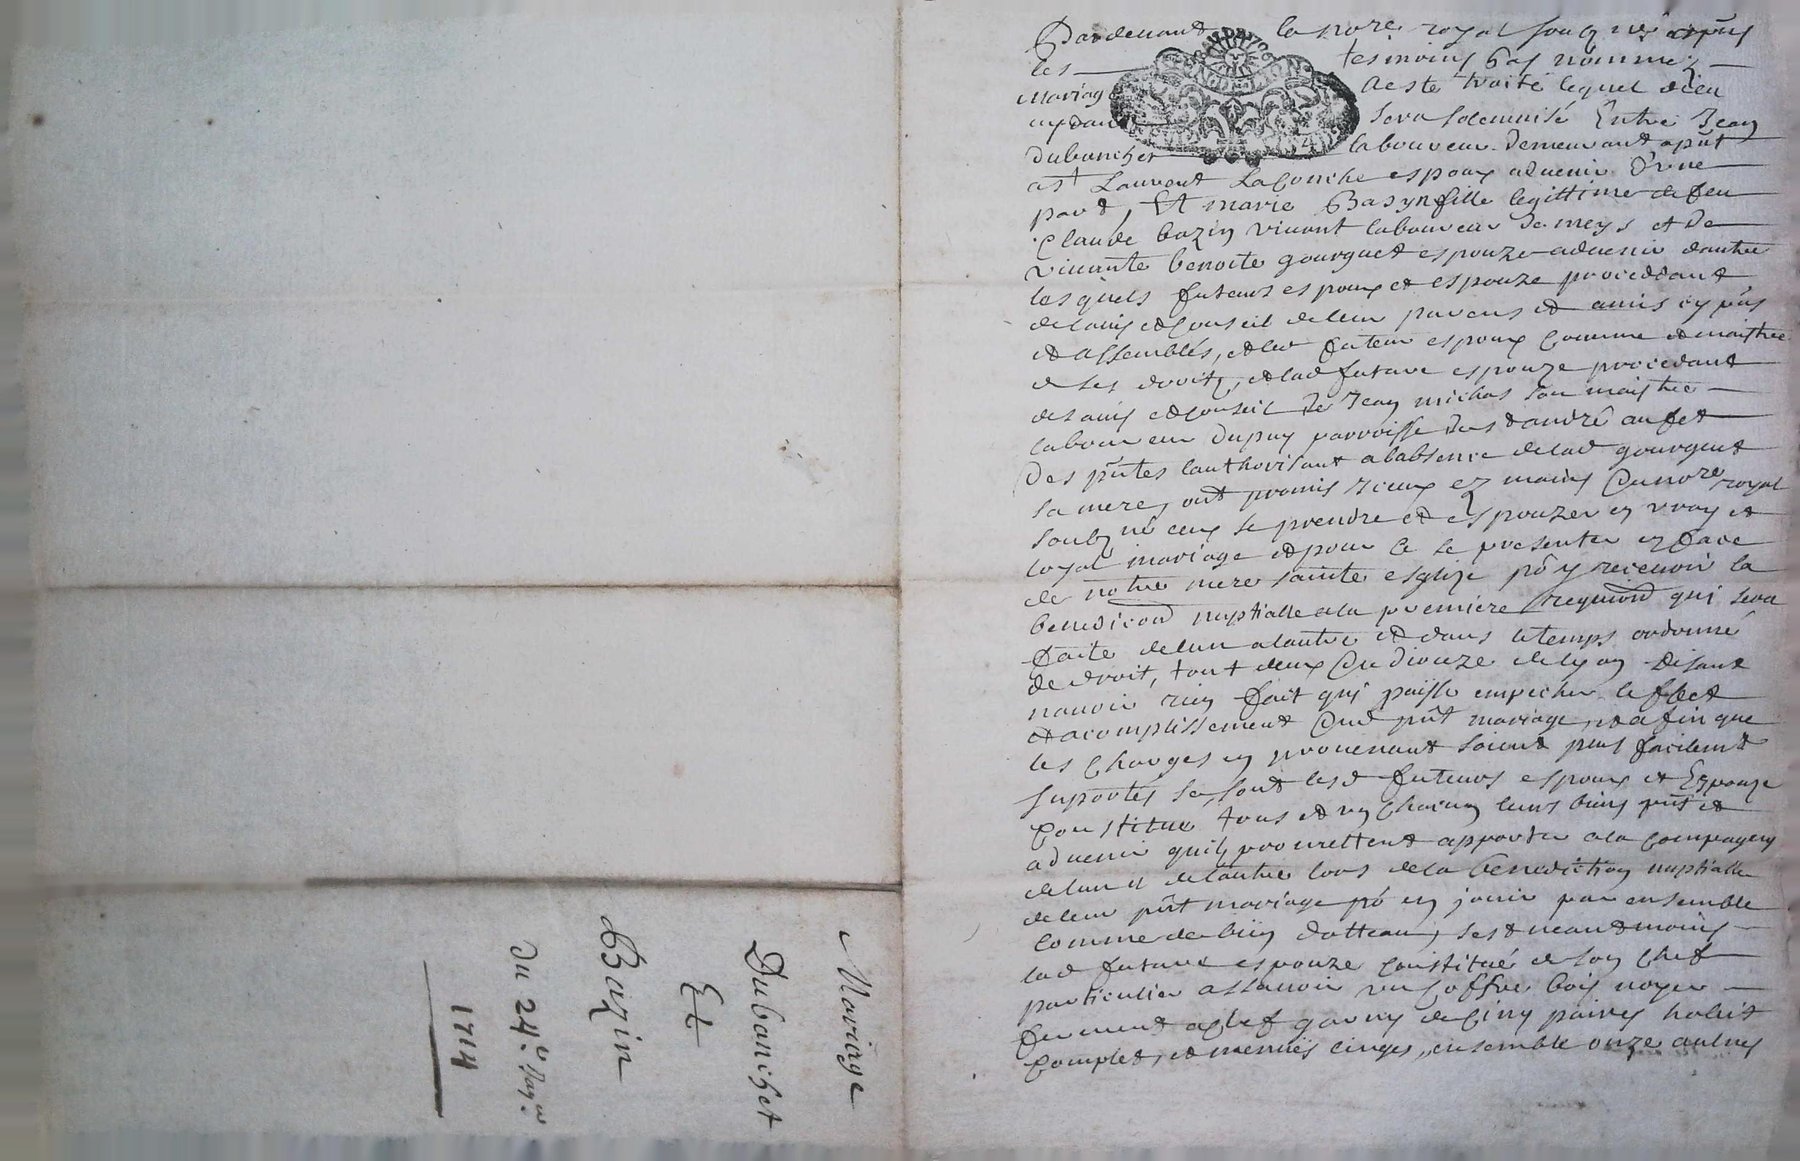 Pardevant le no.re royal soubz né et pñs
les tesmoins bas nommez
Mariage acste traité lequel dieu
aydant sera solemnisé Entre Jean
dubanchet laboureur demeurant apñt
a st Laurent La Conche espoux aduenir d'vne
part, Et marie Bazyn fille legittime de feu
Claude bazin viuant laboureur de meys et de
viuante benoite gourguet espouze aduenir dautre
lesquels futeurs espoux et espouze proceddant
de lauis et Conseil de leur parens et amis cy pñs
et assemblés, et led futeur espoux Comme et maistre
de ses droitz, et lad future espouze procedant
de lauis et Conseil de Jean michas son maistre
laboureur dupuy parroisse de st andré au fet
des pñtes lauthorisant a labsence de lad gourguet
sa mere, ont promis Iceux ez mains du no.re royal
soubz né eux se prendre et espouzer en vray et
loyal mariage et pour ce se presenter en face
de notre mere sainte esglize põ y receuoir la
benedicõn nuptialle a la premiere requisiõn qui sera
faite de lun a lautre et dans le temps ordonné
de droit, tout deux du dioceze de lyon disant
nauoir rien fait qui puisse empecher leffect
et acomplissement dud pñt mariage, et afin que
les Charges en prouenant soient plus facilemt
suportés se sont lesd futeurs espoux et Espouze
Constitue tous et vn Chacun leurs biens pñs et
aduenir quilz promettent apporter a la Compagny
de lun et de lautre lors de la benediction nuptialle
de leur pñt mariage põ en jouir par ensemble
Comme de bien dotteau, sest neantmoins
lad future espouze Constitué de son Chef
particulier assauoir vn Coffre bois noyer
fermant a clef garny de Cinq paires habit
Complet, et menues linges, ensemble onze aulnes
Mariage
Dubanchet
Et
Bazin
Du 24e Janer
1714